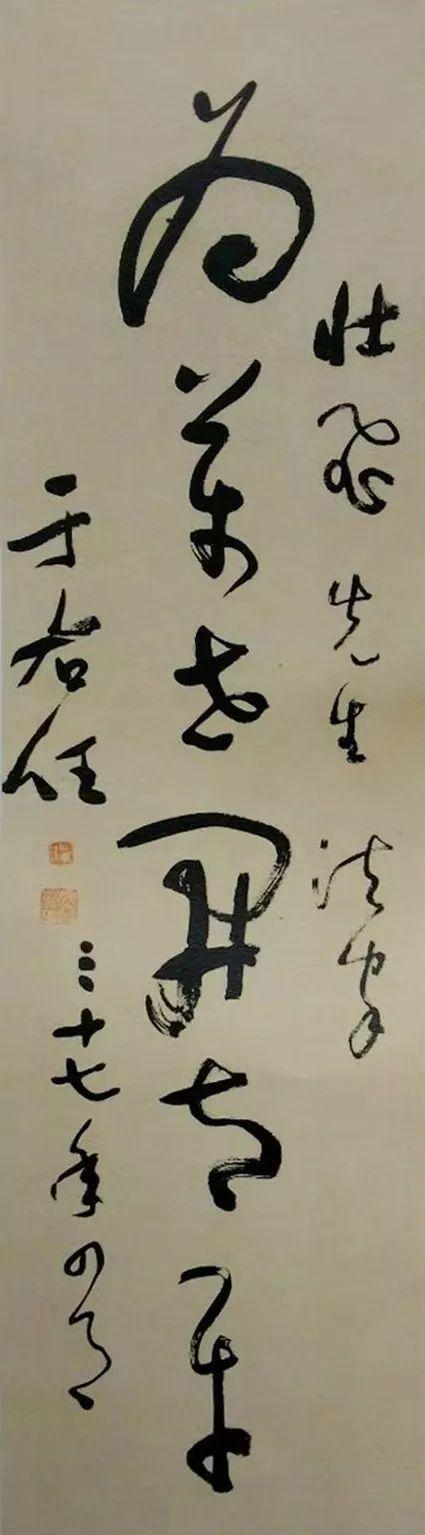 壯飛先生 法家
為萬世開太平
于右任
三十七年四月